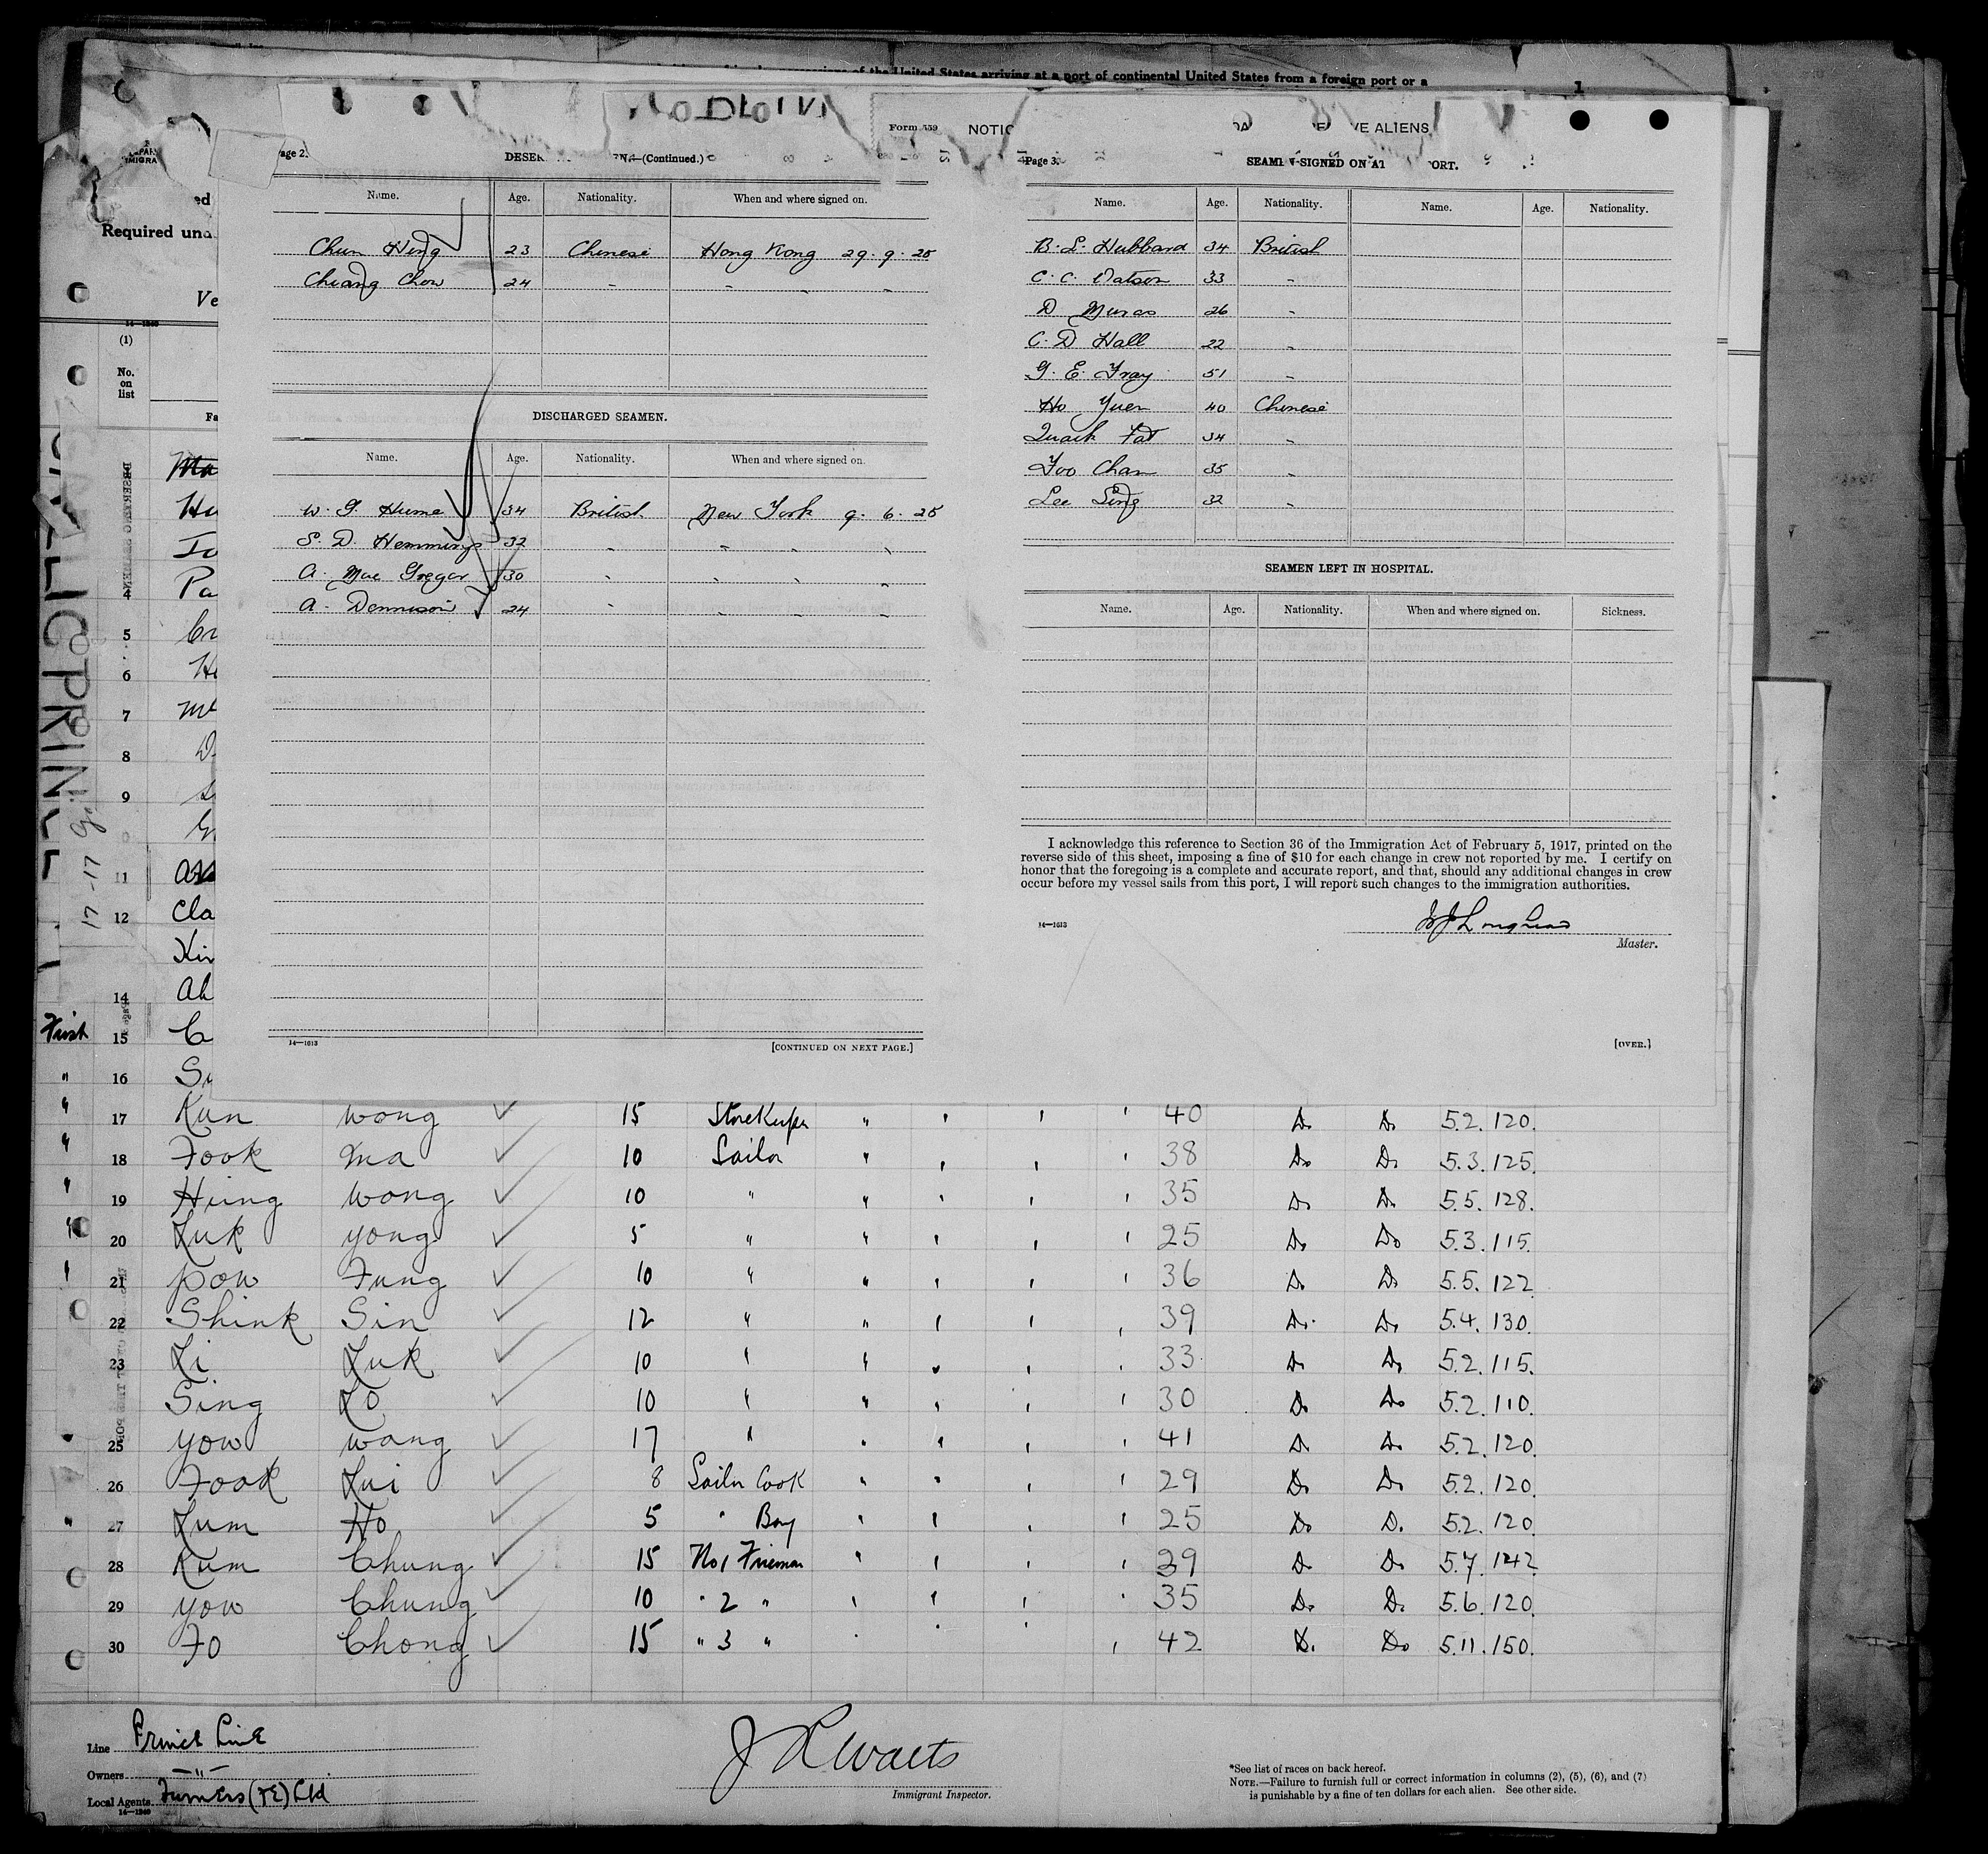 of the United States arriving at a port of continental United States from a foreign port or a
1
Form 659 NOTIC VE ALIENS
Page 2. DESER (Continued.)
Name. Age. Nationality. When and where signed on.
Chun Hing 23 Chinese Hong Kong 29.9.25
Chiang Chow 24 " " " "
DISCHARGED SEAMEN.
Name. Age. Nationality. When and where signed on.
W. G. Hume 34 British New York 9.6.25
S. D. Hemmings 32 " " " "
A. Mac Gregor 30 " " " "
A. Dennison 24 " " " "
14—1613 [CONTINUED ON NEXT PAGE.]
Page 3. SEAMEN SIGNED ON AT PORT.
Name. Age. Nationality. Name. Age. Nationality.
B. L. Hubbard 34 British
C. C. Watson 33 "
D 26 "
C. D Hall 22 "
G. E. Gray 51 "
Ho Yuen 40 Chinese
Quack Fat 34 "
Foo Chan 35 "
Lee Sing 32 "
SEAMEN LEFT IN HOSPITAL.
Name. Age. Nationality. When and where signed on. Sickness.
I acknowledge this reference to Section 36 of the Immigration Act of February 5, 1917, printed on the
reverse side of this sheet, imposing a fine of $10 for each change in crew not reported by me. I certify on
honor that the foregoing is a complete and accurate report, and that, should any additional changes in crew
occur before my vessel sails from this port, I will report such changes to the immigration authorities.
14—1613
Master.
[OVER.]
ed
Required und
Ve
14—1240
(1)
No.
on
list
Fa
Hu
4 Pa
5 Cr
6 H
7
8 D
9
11
12 Cla
Kin
14 Ah
First 15 C
" 16 Su
" 17 Kun Wong 15 Storekeeper " " " " 40 Do Do 5.2. 120.
" 18 Fook Ma 10 Sailor " " " " 38 Do Do 5.3. 125.
" 19 Hung Wong 10 " " " " " 35 Do Do 5.5. 128.
" 20 Luk Yong 5 " " " " " 25 Do Do 5.3. 115.
" 21 Pow Fung 10 " " " " " 36 Do Do 5.5. 122
22 Shink Sin 12 " " " " " 39 Do Do 5.4. 130.
23 Li Luk 10 " " " " " 33 Do Do 5.2. 115.
Sing Lo 10 " " " " " 30 Do Do 5.2. 110.
" 25 Yow Wang 17 " " " " " 41 Do Do 5.2. 120.
26 Fook Lui 8 Sailor Cook " " " " 29 Do Do 5.2. 120.
" 27 Lum Ho 5 " Boy " " " " 25 Do Do 5.2. 120
28 Kum Chung 15 No 1 Fireman " " " " 39 Do Do 5.7. 142
29 Yow Chung 10 " 2 " " " " " 35 Do Do 5.6. 120.
30 Fo Chong 15 " 3 " " " " " 42 Do Do 5.11. 150.
Line Prince Line
Owners "
Local Agents Furness (FE) Ltd
14—1240
Immigrant Inspector.
*See list of races on back hereof.
NOTE.—Failure to furnish full or correct information in columns (2), (5), (6), and (7)
is punishable by a fine of ten dollars for each alien. See other side.